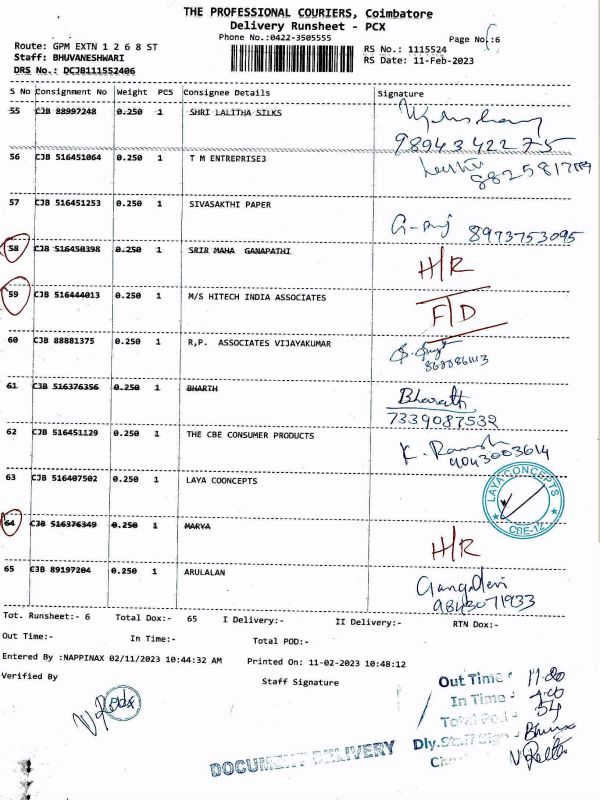 THE PROFESSIONAL COURIERS, Coimbatore
Delivery Runsheet - PCX
Phone No.:0422-3505555
Page No.:6
Route: GPM EXTN 1 2 6 8 ST
Staff: BHUVANESHWARI
DRS No.: DCJB111552406
RS No.: 1115524
RS Date: 11-Feb-2023
S No Consignment No Weight PCS Consignee Details Signature
55 CJB 88997248 0.250 1 SHRI LALITHA SILKS
9894342275
56 CJB 516451064 0.250 1 T M ENTRERRISE3
57 CJB 516451253 0.250 1 SIVASAKTHI PAPER
8973753095
58 CJB 516450398 0.250 1 SRIR MAHA GANAPATHI H/R
59 CJB 516444013 0.250 1 M/S HITECH INDIA ASSOCIATES F/D
60 CJB 88881375 0.250 1 R,P. ASSOCIATES VIJAYAKUMAR
61 CJB 516376356 0.250 1 BHARTH Bharath
7339087532
62 CJB 516451129 0.250 1 THE CBE CONSUMER PRODUCTS K. Ramesh
9043003614
63 CJB 516407502 0.250 1 LAYA COONCEPTS
LAYA CONCEPTS
CBE-12
64 CJB 516376349 0.250 1 MARVA H/R
65 CJB 89197204 0.250 1 ARULALAN Ganga Devi
9843071933
Tot. Runsheet:- 6 Total Dox:- 65 I Delivery:- II Delivery:- RTN Dox:-
Out Time:- In Time:- Total POD:-
Entered By :NAPPINAX 02/11/2023 10:44:32 AM Printed On: 11-02-2023 10:48:12
Verified By Staff Signature
Out Time 11-00
In Time
Total Pod - 54
Dly.Staff Sign -
DOCUMENT DELIVERY